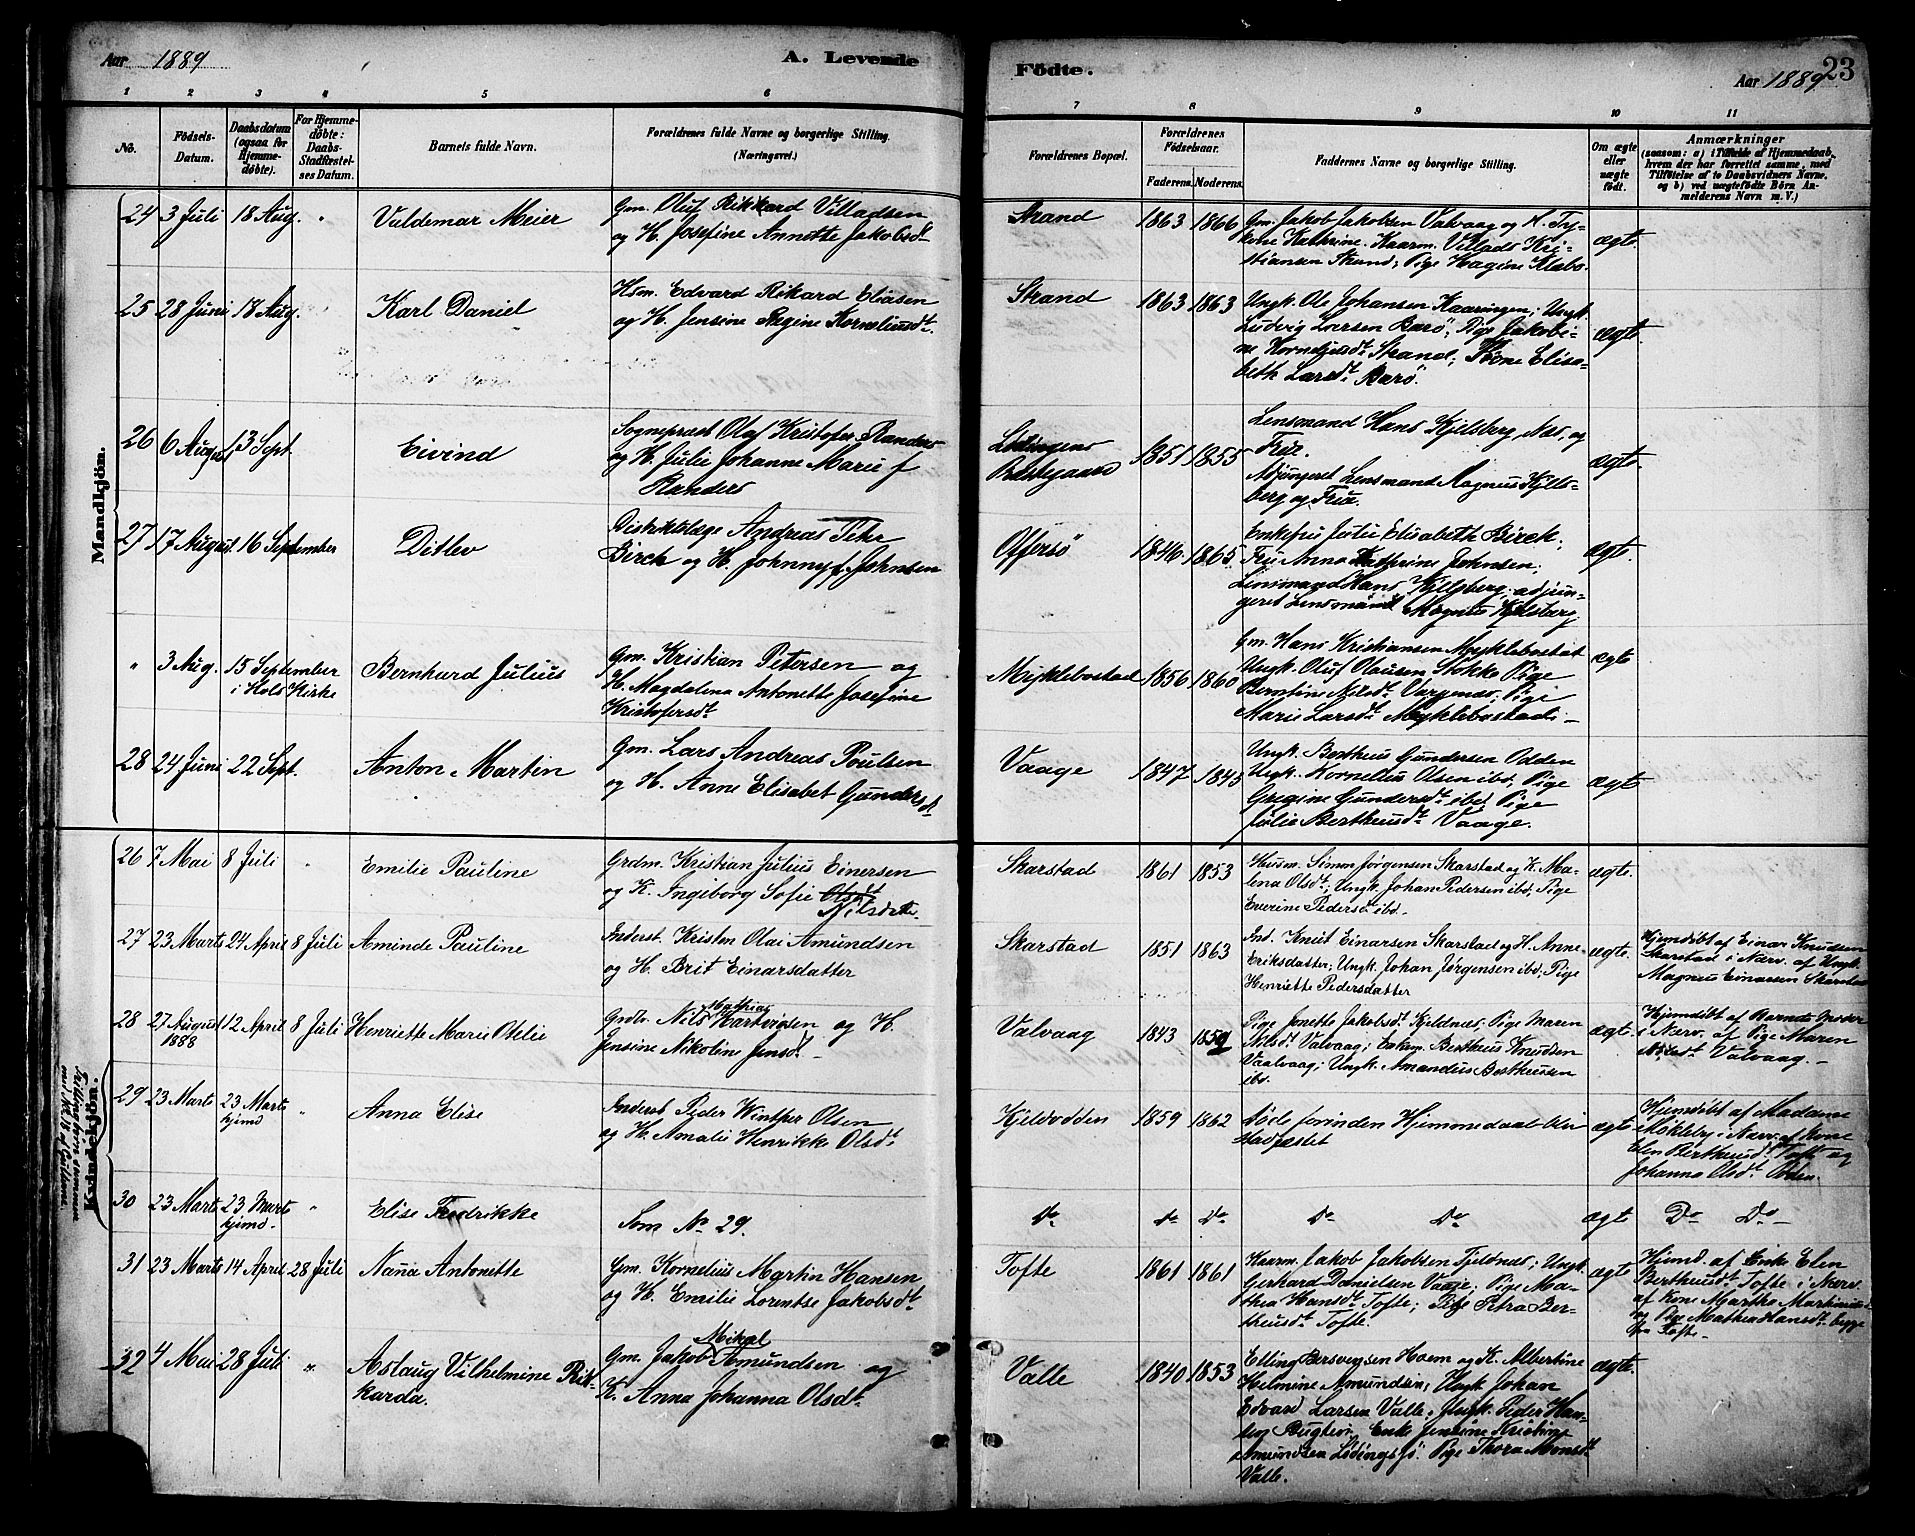 Aar 1889
A. Levende
Födte.
Aar 1889
23
1 2 3 4 5 6 7 8 9 10 11
No.
Födsels-
Datum.
Daabsdatum
(ogsaa for
Hjemme-
döbte).
For Hjemme-
döbte:
Daabs-
Stadfæstel-
ses Datum.
Barnets fulde Navn.
Forældrenes fulde Navne og borgerlige Stilling.
(Næringsvei.)
Forældrenes Bopæl.
Forældrenes
Födselsaar.
Faderens. Moderens.
Faddernes Navne og borgerlige Stilling.
Om ægte
eller
uægte
födt.
Anmærkninger
(saasom: a) i Tilfælde af Hjemmedaab,
hvem der har forrettet samme, med
Tilföielse af to Daabsvidners Navne,
og b) ved uægtefödte Börn An-
melderens Navn m. V.)
Mandkjön.
24 3 Juli 18 Aug. " Valdemar Meier
Gm. Oluf Rikkard Villadsen
og H. Josefine Annette Jakobsdt
Strand 1863 1866
Gm. Jakob Jakobsen Valvaag og H. Ty-
Kone Kathrine. Kaarm. Villads Kri-
stiansen Strand; Pige Hagine Klæbo.
ægte
25 28 Juni 18 Aug. " Karl Daniel
Hsm. Edvard Rikard Eliasen
og H. Jensine Regine Korneliusdt.
Strand 1863 1863
Ungk. Ole Johansen Kaaringen; Ungk.
Ludvig Larsen Barö; Pige Jakobi-
ne Korneliusdt. Strand; Kone Elisa-
beth Larsdt. Barö.
ægte.
26 6 August 13 Sept. Eivind
Sogneprest Olaf Kristofer Randers
og H. Julie Johanne Marie f
Randers
Lödingens
Præstegaard 1851 1855
Lensmand Hans Kjelsberg, Næs, og
Frue.
Adjungeret Lensmand Magnus Kjels-
berg og Frue.
ægte.
27 17 August. 16 September Ditlev
Distriktslæge Andreas Fehr
Birch og H. Johnny f. Johnsen
Offersö 1846. 1865.
Enkefru Julie Elisabeth Birck;
Fru Anna Kathrine Johnsen;
Lensmand Hans Kjelsberg; adjun-
geret Lensmand Magnus Kjelsberg
ægte.
" 3 Aug. 15 September
i Hols Kirke
Bernhard Julius
Gm. Kristian Petersen og
H. Magdalena Antonette Josefine
Kristofersdt.
Myklebostad 1856 1860
Gm. Hans Kristiansen Myklebostat
Ungk. Oluf Olausen Stokke Pige
Berntine Nilsdt. Vargenes; Pige
Marie Larsdt. Myklebostad; —
ægte
28 24 Juni 22 Sept. Anton Martin
Gm. Lars Andreas Poulsen
og H. Anne Elisabet Gundersdt
Vaage 1847 1845
Ungk. Bertheus Gundersen Odden
Ungk. Kornelius Olsen ibd, Pige
Gregine Gundersdt. ibet Pige
Julie Bertheusdt. Vaage.
ægte
Kvindekjön.
Tvillingbörn sammen
26 7 Mai 8 Juli " Emilie Pauline
Grdm. Kristian Julius Einersen
og K. Ingeborg Sofie Olsdt
Nilsdatter.
Skarstad 1861 1853
Husm. Simon Jørgensen Skarstad og K. Ma-
lena Olsdt; Ungk. Johan Pedersen ibd; Pige
Everine Pedersdt ibd.
ægte.
27 23 Marts 24 April 8 Juli Aminde Pauline
Inderst. Kristen Olai Amundsen
og H. Brit Einarsdatter
Skarstad 1851 1863
Ind. Knut Einarsen Skarstad og H. Anne
Eriksdatter; Ungk. Johan Jørgensen ibd; Pige
Henriette Pedersdatter
ægte.
Hjemdöbt af Einar Knudsen
Skarstad i Nærv. af Ungk.
Magnus Einarsen Skarstad
28 27 August
1888
12 April 8 Juli Henriette Marie Otelie
Mathias
Grdbr. Nils Hartvigsen og H.
Jensine Nikoline Jensdt. —
Valvaag 1843 1852
Pige Jonette Jakobsdt. Kjeldnes; Pige Maren
Nilsdt. Valvaag; Enkem. Bertheus Knudsen
Vaalvaag; Ungk. Amandus Bertheussen
ibd.
ægte.
Hjemdöbt af Barnets Moder
i Nærv. af Pige Maren
Nilsdt. Valvaag. —
29 23 Marts 23 Marts
hjemd
" Anna Elise
Inderst Peder Winther Olsen
og H. Amalie Henrikke Olsdt
Kjeldodden 1859 1862
Döde forinden Hjemmedaaben blev
stadfæstet
ægte
Hjemdöbt af Madame
Mökleby i Nærv. af Kone
Elen Bertheusdt. Tofte og
Johanna Olsdt. Odden.
30 23 Marts 23 Marts
hjemd.
" Elise Fredrikke
Som No 29.
Do Do Do Do Do ægte Do Do —
31 23 Marts 14 April 28 Juli Nana Antonette
Gm. Kornelius Martin Hansen
og H. Emilie Lorentse Jakobsdt.
Tofte 1861 1861
Kaarm. Jakob Jakobsen Fjeldnes; Ungk.
Gerhard Danielsen Vaaje; Pige Ma-
thea Hansdt. Tofte; Pige Petra Ber-
theusdt. Tofte.
ægte
Hjemd. af Enke Elen
Bertheusdt. Tofte i Nærv.
af Kone Martha
og Pige Mathea Hansdt. begge
fra Tofte. —
32 4 Mai 28 Juli " Aslaug Vilhelmine Rik-
karda.
Mikal
Gm. Jakob Amundsen og
K. Anna Johanna Olsdt.
Valle 1840 1853
Elling Bersvensen Hoem og K. Albertine
Helmine Amundsen; Ungk. Johan
Edvard Larsen Valle. Ungk. Peder Han-
sen Enke Jensine Kristine
Amundsen Lödingsjö. Pige Thora Monsdt.
Valle.
ægte.